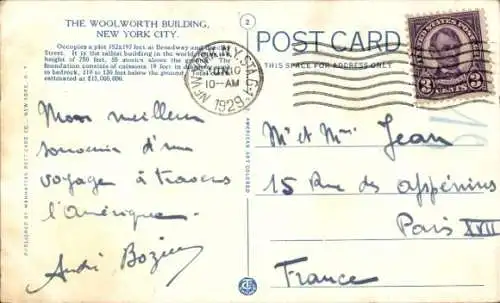 THE WOOLWORTH BUILDING,
NEW YORK CITY.
Occupies a plot 152x197 feet at Broadway and
Street. It is the tallest building in the world
height of 750 feet, 55 stories above the
foundation consists of caissons 19 feet in diameter
to bedrock, 110 to 130 feet below the ground
estimated at
Mon meilleur
souvenir d'un
voyage à travers
l'Amérique
André
PUBLISHED BY MANHATTAN POST CARD CO., NEW YORK, N. Y.
AMERICAN ART COLORED
2
POST CARD
THIS SPACE FOR ADDRESS ONLY
NEW YORK, N.Y. STA.
JUN 10
10-AM
1929
UNITED STATES POSTAGE
3 CENTS 3
Mr et Mme Jean
15 Rue des apénins
Paris XVII
France